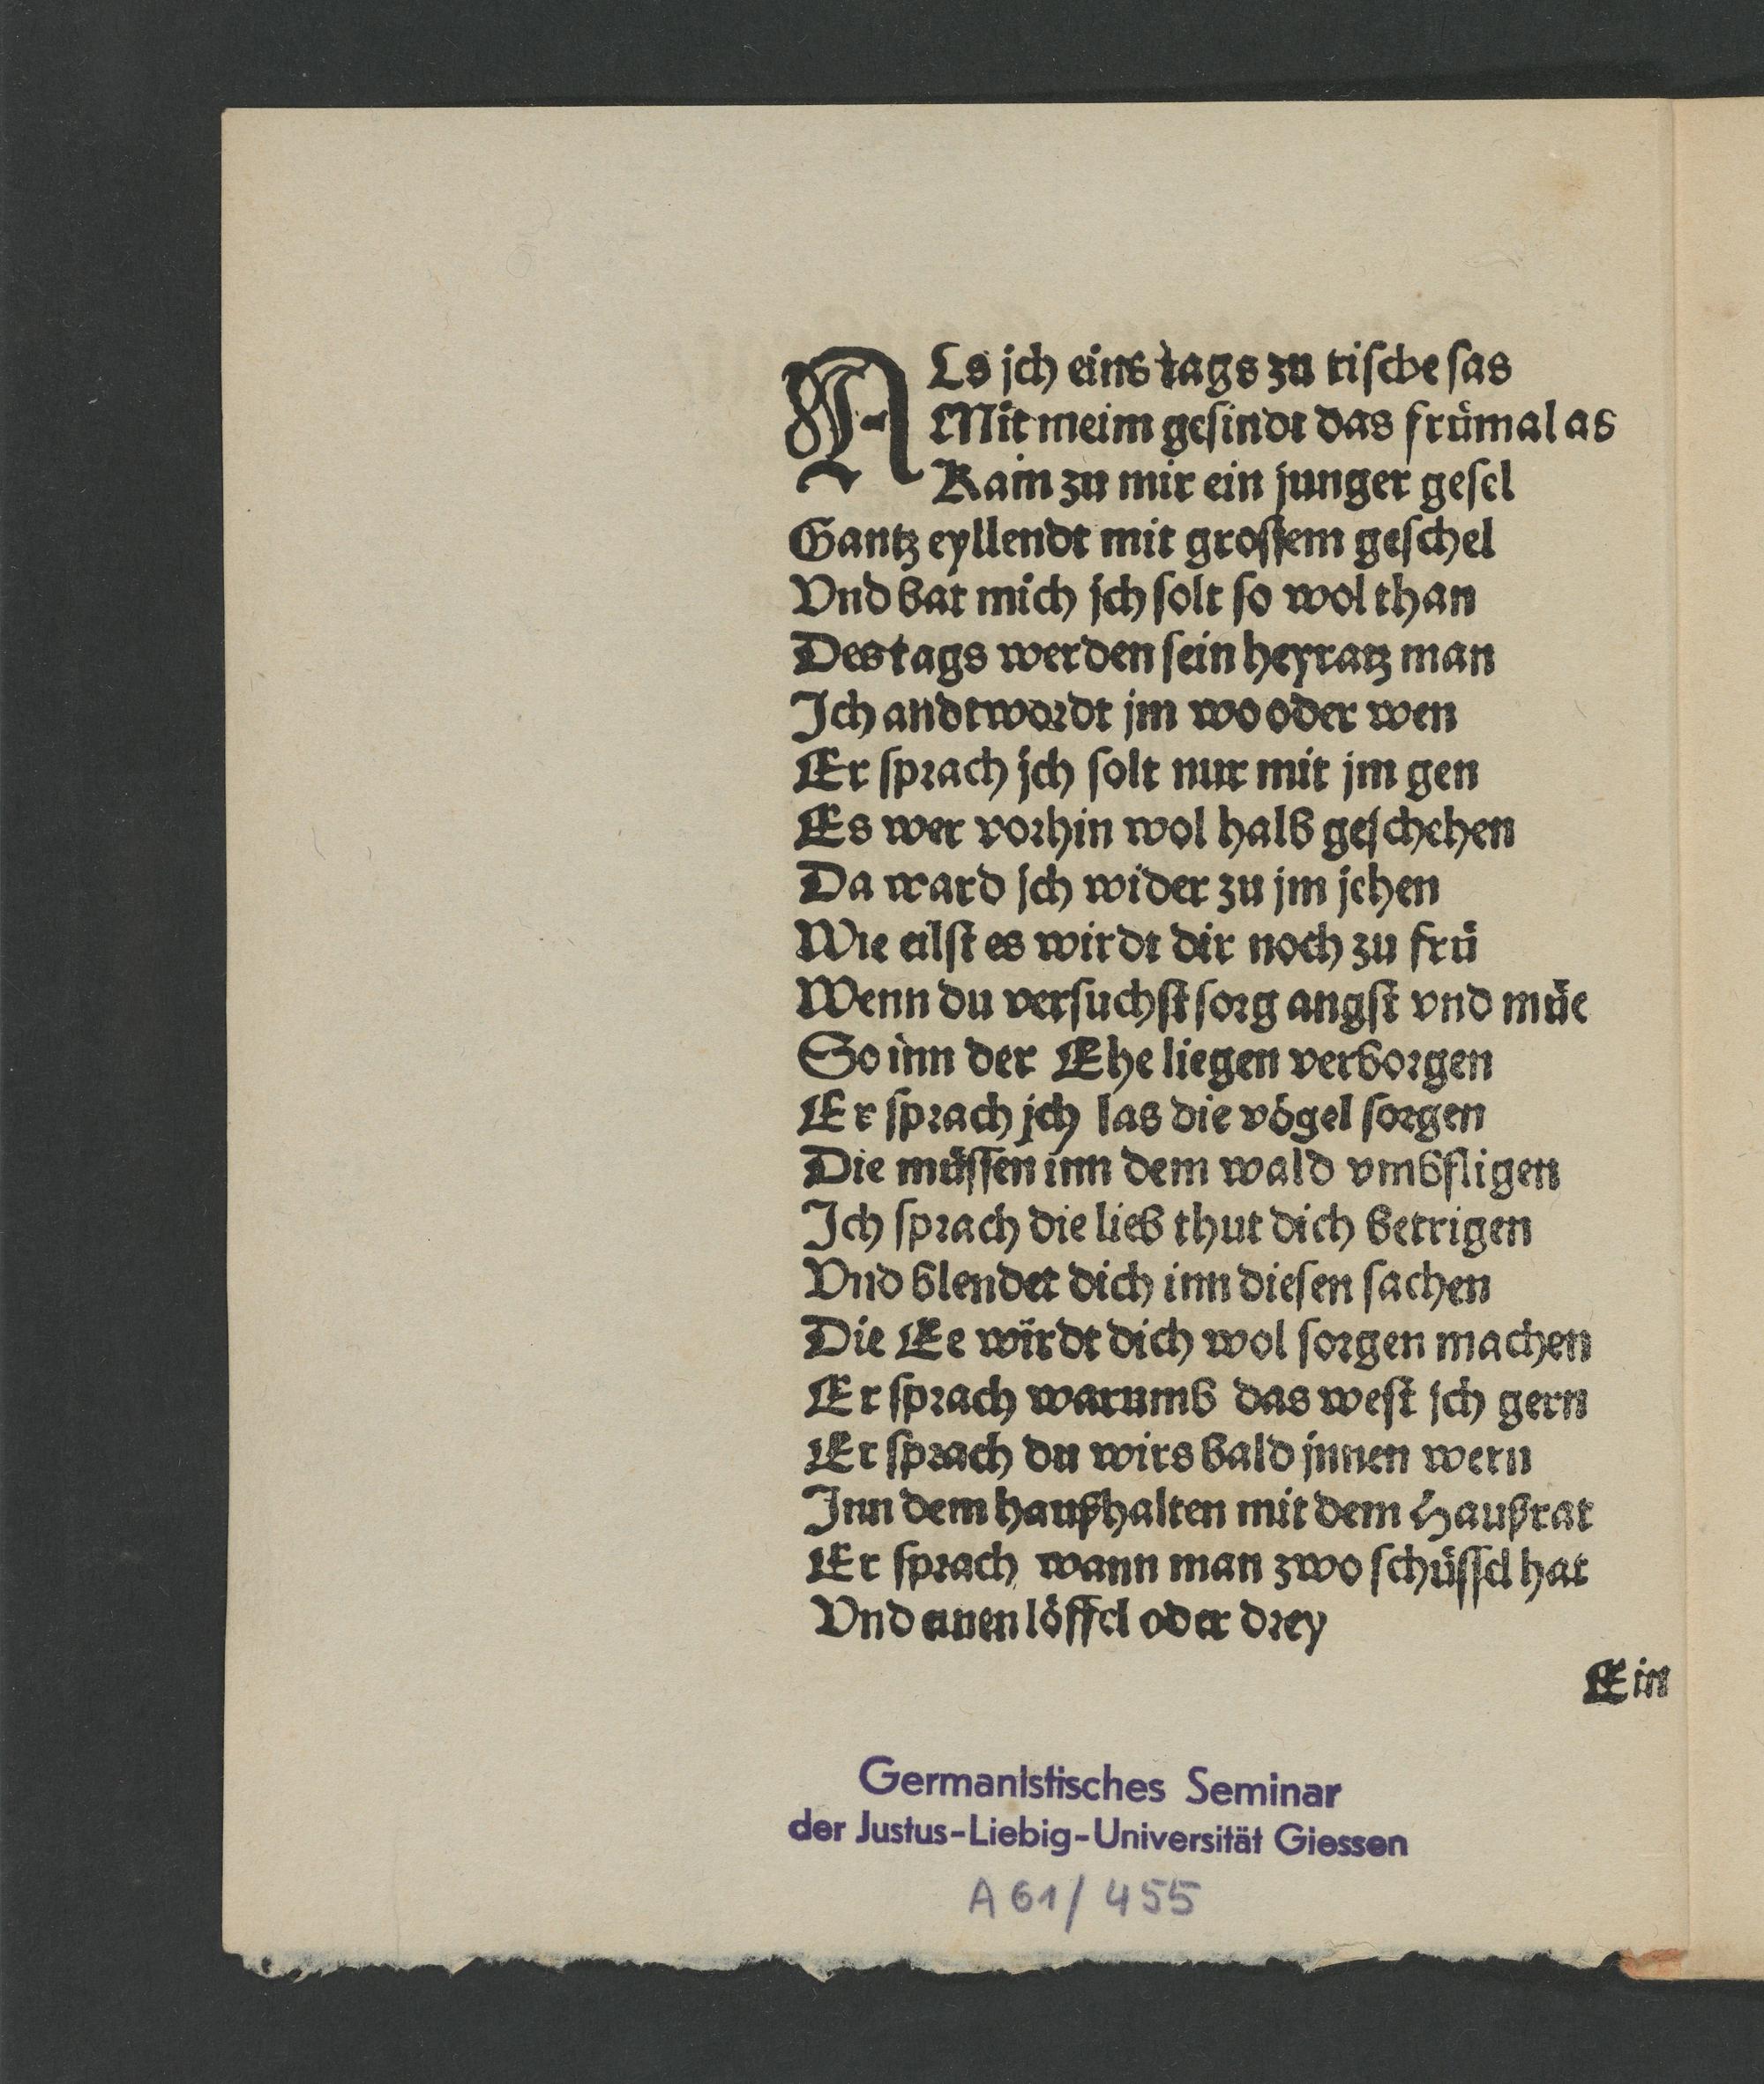 ALs jch eins tags zu tische sas
Mit meim gesindt das fruͤmal as
Kam zu mir ein junger gesel
Gantz eyllendt mit grossem geschel
Vnd bat mich jch solt so wol than
Des tags werden sein heyratz man
Ich andtwordt jm wo oder wen
Er sprach jch solt nur mit jm gen
Es wer vorhin wol halb geschehen
Da ward jch wider zu jm jehen
Wie eilst es wirdt dir noch zu fruͤ
Wenn du versuchst sorg angst vnd muͤe
So inn der Ehe liegen verborgen
Er sprach jch las die voͤgel sorgen
Die muͤssen inn dem wald vmbfligen
Ich sprach die lieb thut dich betrigen
Vnd blendet dich inn diesen sachen
Die Ee wirdt dich wol sorgen machen
Er sprach warumb das west jch gern
Er sprach du wirs bald jnnen wern
Inn dem haußhalten mit dem Haußrat
Er sprach wann man zwo schuͤssel hat
Vnd einen loͤffel oder drey
Ein
Germanistisches Seminar
der Justus-Liebig-Universität Giessen
A 61/455